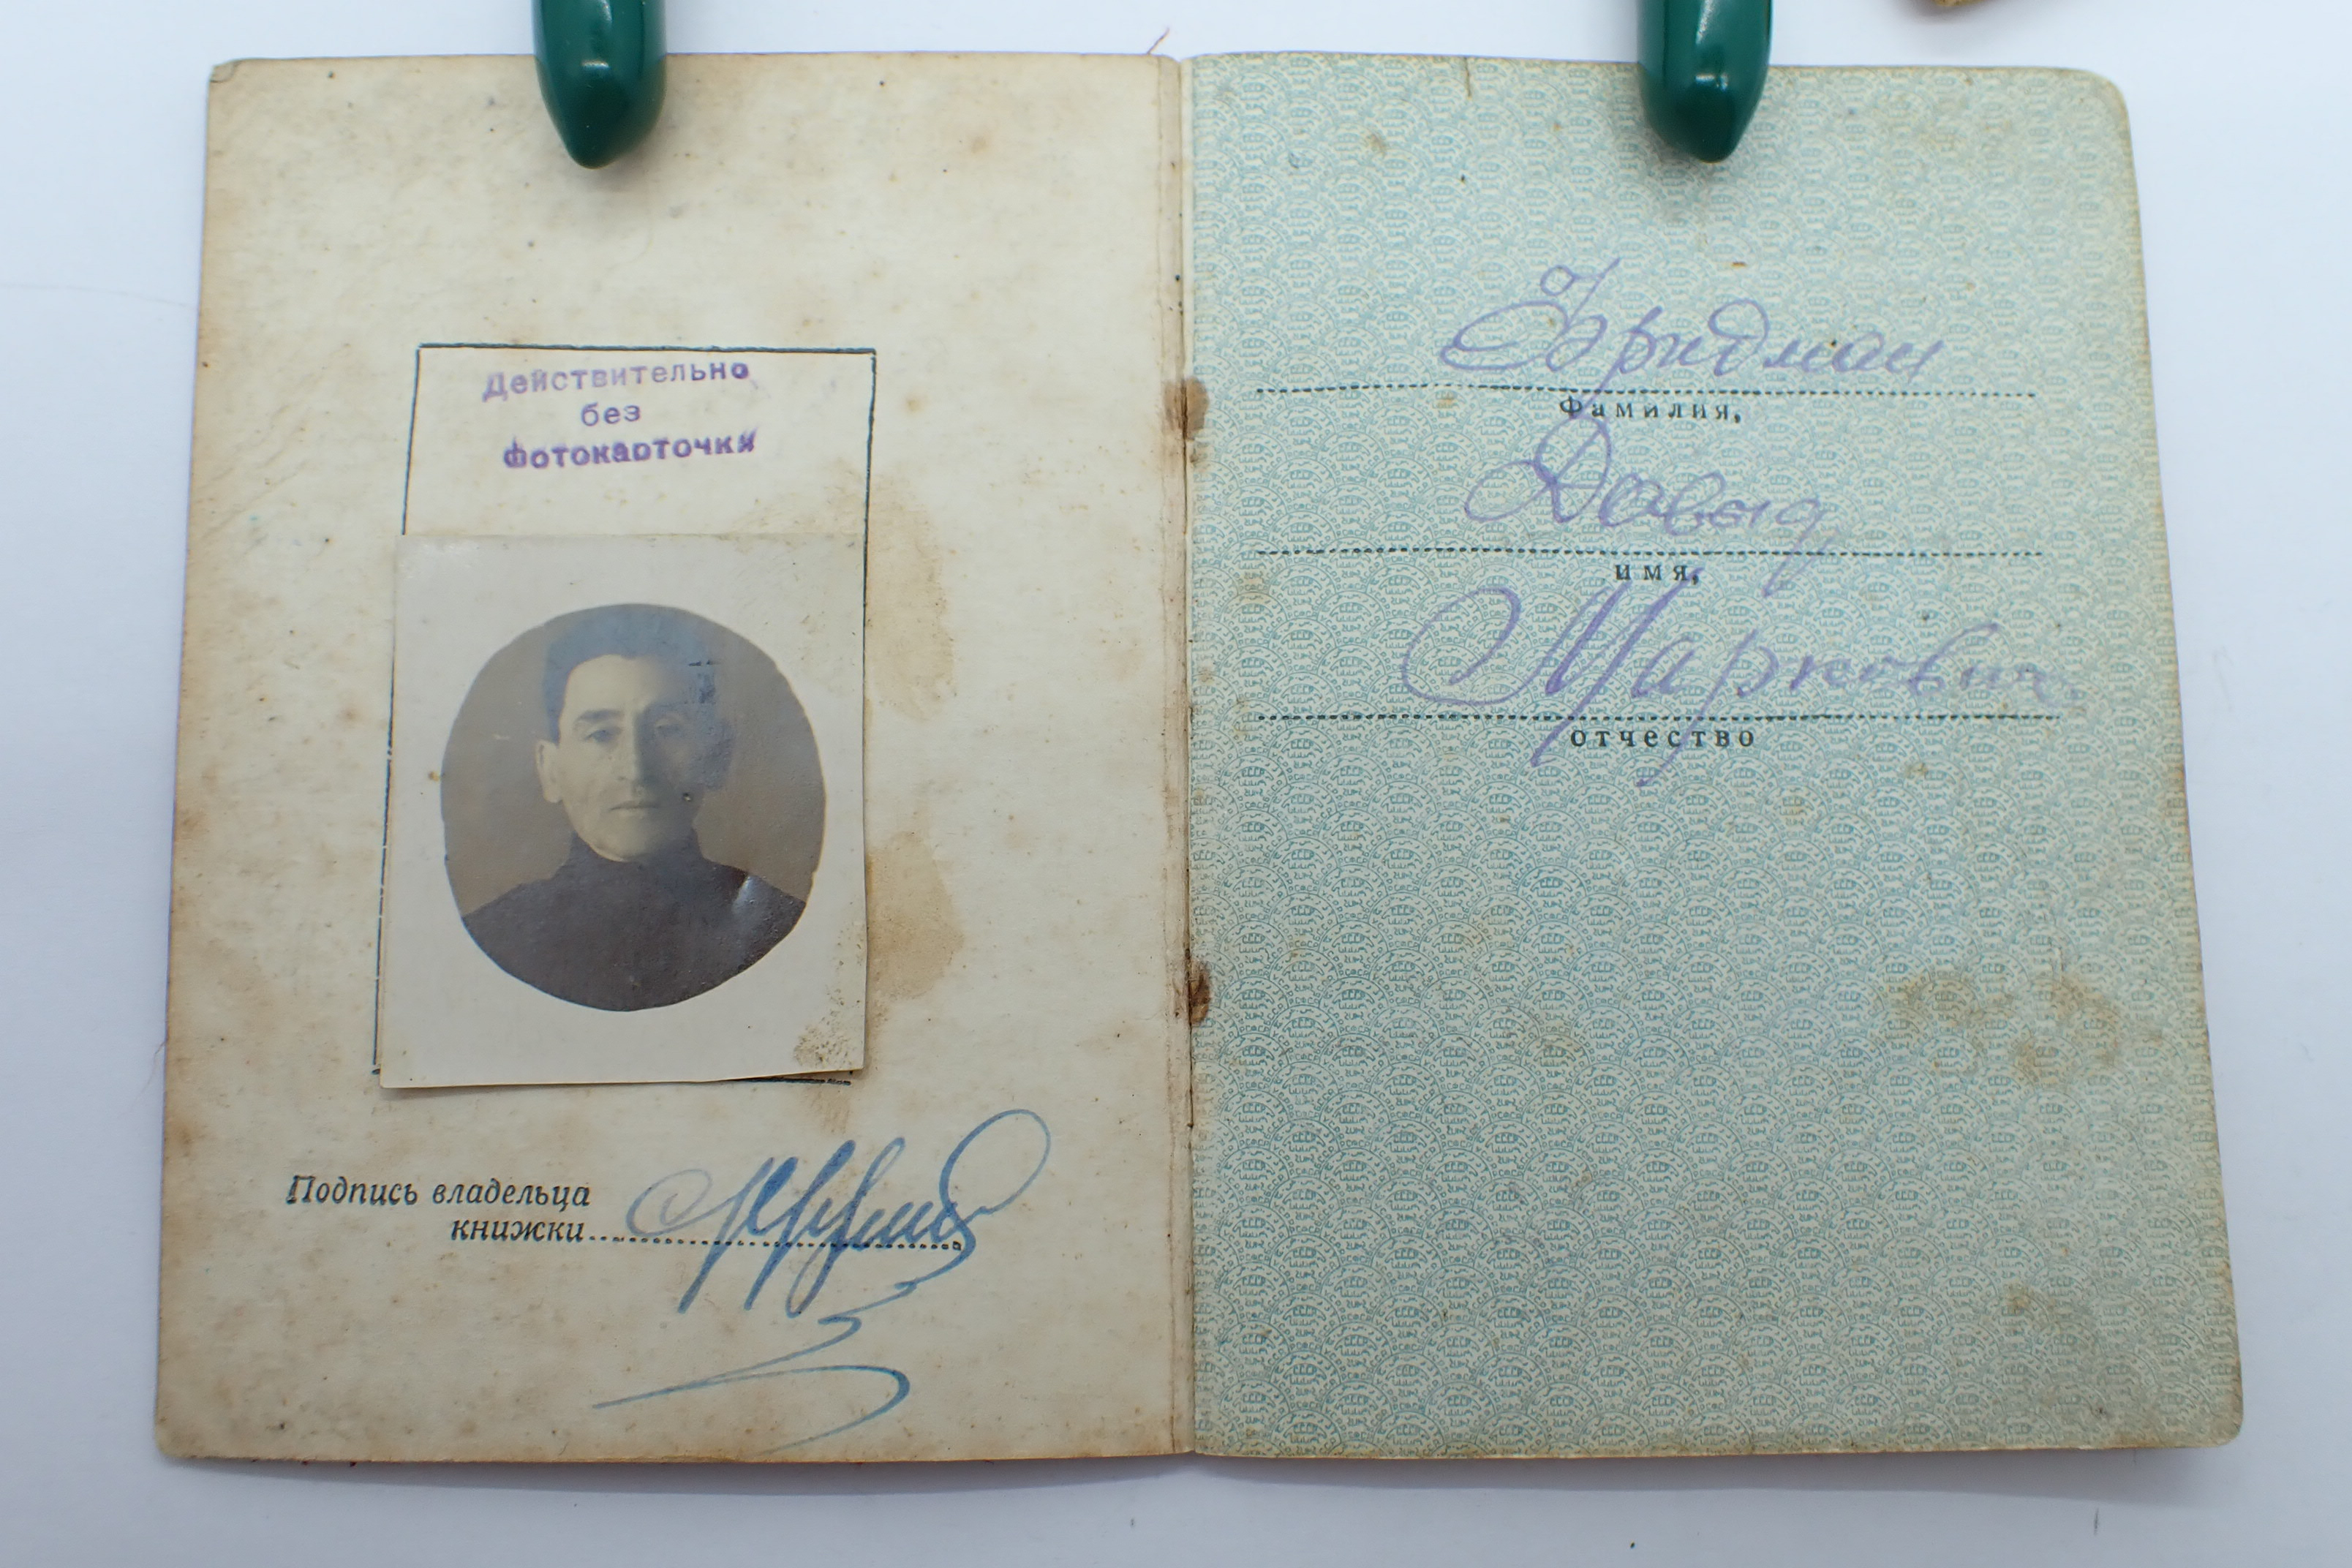 Действительно
без
фотокарточки
Подпись владельца
книжки
Фридман
Фамилия,
Давыд
имя,
Маркович
отчество